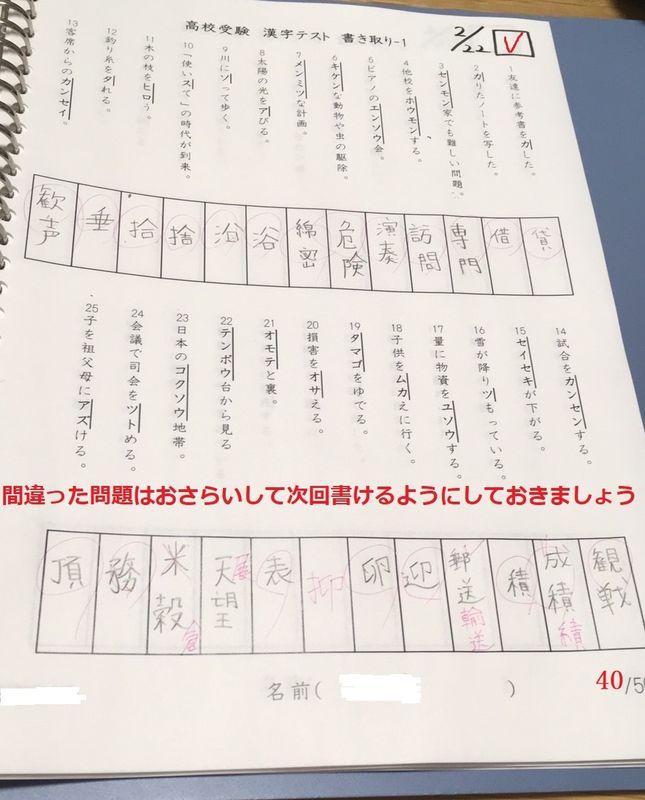 高校受験 漢字テスト 書き取り-1
2/22
1 友達に参考書をカした。
2 カりたノートを写した。
3 センモン家でも難しい問題。
4 他校をホウモンする。
5 ピアノのエンソウ会。
6 キケンな動物や虫の駆除。
7 メンミツな計画。
8 太陽の光をアびる。
9 川にソって歩く。
10 「使いスて」の時代が到来。
11 木の枝をヒロう。
12 釣り糸をタれる。
13 客席からのカンセイ。
貸
借
専門
訪問
演奏
危険
綿密
浴
沿
捨
拾
垂
歓声
14 試合をカンセンする。
15 セイセキが下がる。
16 雪が降りツもっている。
17 量に物資をユソウする。
18 子供をムカえに行く。
19 タマゴをゆでる。
20 損害をオサえる。
21 オモテと裏。
22 テンボウ台から見る
23 日本のコクソウ地帯。
24 会議で司会をツトめる。
25 子を祖父母にアズける。
間違った問題はおさらいして次回書けるようにしておきましょう
観戦
成積 績
積
郵送 輸送
迎
卵
抑
表
天望 展
米穀 倉
務
頂
名前( )
40/5